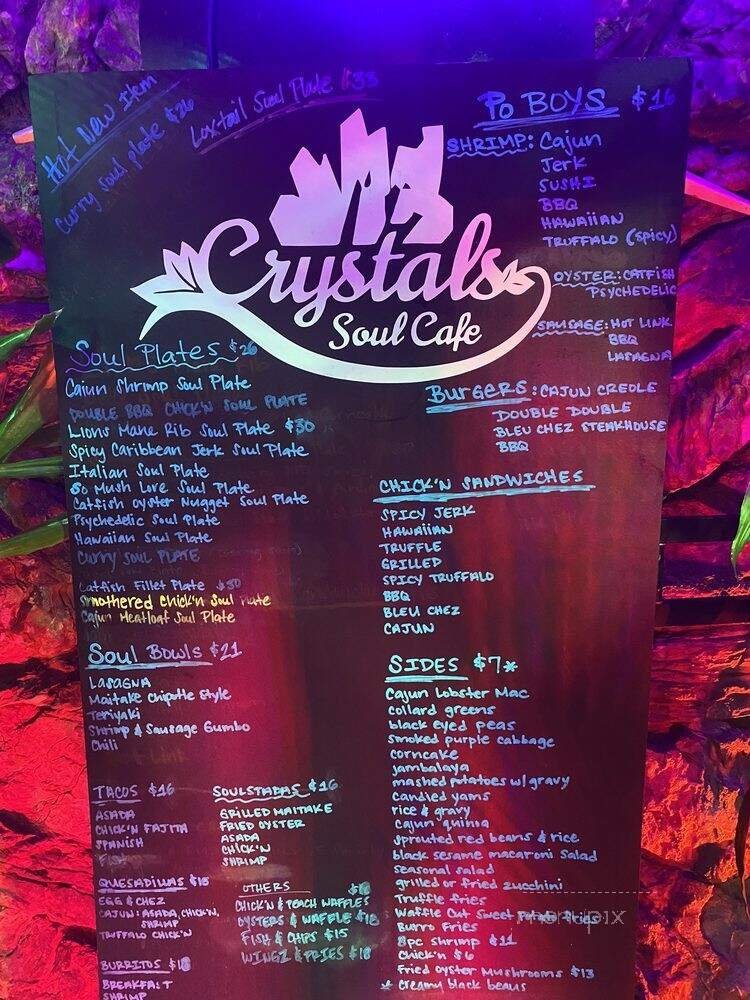 Hot New Item
Curry soul plate $26
Soul Plate $33
Po BOYS $16
SHRIMP: Cajun
Jerk
SUSHI
BBQ
HAWAIIAN
TRUFFALO (spicy)
OYSTER: CATFISH
PSYCHEDELIC
SAUSAGE: HOT LINK
BBQ
LASAGNA
Crystals
Soul Cafe
Soul Plates $26
Cajun Shrimp Soul Plate
DOUBLE BBQ CHICK'N SOUL PLATE
Lions Mane Rib Soul Plate $30
Spicy Caribbean Jerk Soul Plate
Italian Soul Plate
So Mush Love Soul Plate
Catfish Oyster Nugget Soul Plate
Psychedelic Soul Plate
Hawaiian Soul Plate
CURRY SOUL PLATE
Catfish Fillet Plate $30
Smothered Chick'n Soul Plate
Cajun Meatloaf Soul Plate
BURGERS: CAJUN CREOLE
DOUBLE DOUBLE
BLEU CHEZ STEAKHOUSE
BBQ
CHICK'N SANDWICHES
SPICY JERK
HAWAIIAN
TRUFFLE
GRILLED
SPICY TRUFFALO
BBQ
BLEU CHEZ
CAJUN
Soul Bowls $21
LASAGNA
Maitake Chipotle Style
Teriyaki
Shrimp & Sausage Gumbo
Chili
SIDES $7*
Cajun Lobster Mac
collard greens
black eyed peas
smoked purple cabbage
corncake
jambalaya
mashed potatoes w/ gravy
candied yams
rice & gravy
cajun quinia
sprouted red beans & rice
black sesame macaroni salad
seasonal salad
grilled or fried zucchini
Truffle fries
Waffle Cut Sweet Potato
Burro Fries
8pc shrimp $11
Chick'n $6
Fried oyster Mushrooms $13
* Creamy black beans
TACOS $16
ASADA
CHICK'N FAJITA
SPANISH
FISH
SOULSTADAS $16
GRILLED MAITAKE
FRIED OYSTER
ASADA
CHICK'N
SHRIMP
QUESADILLAS
EGG & CHEZ
CAJUN: ASADA, CHICK'N,
SHRIMP
TRUFFALO CHICK'N
OTHERS
CHICK'N & PEACH WAFFLES
OYSTERS & WAFFLE $18
FISH & CHIPS $15
WINGZ & FRIES $18
BURRITOS
BREAKFAST
SHRIMP
menupix